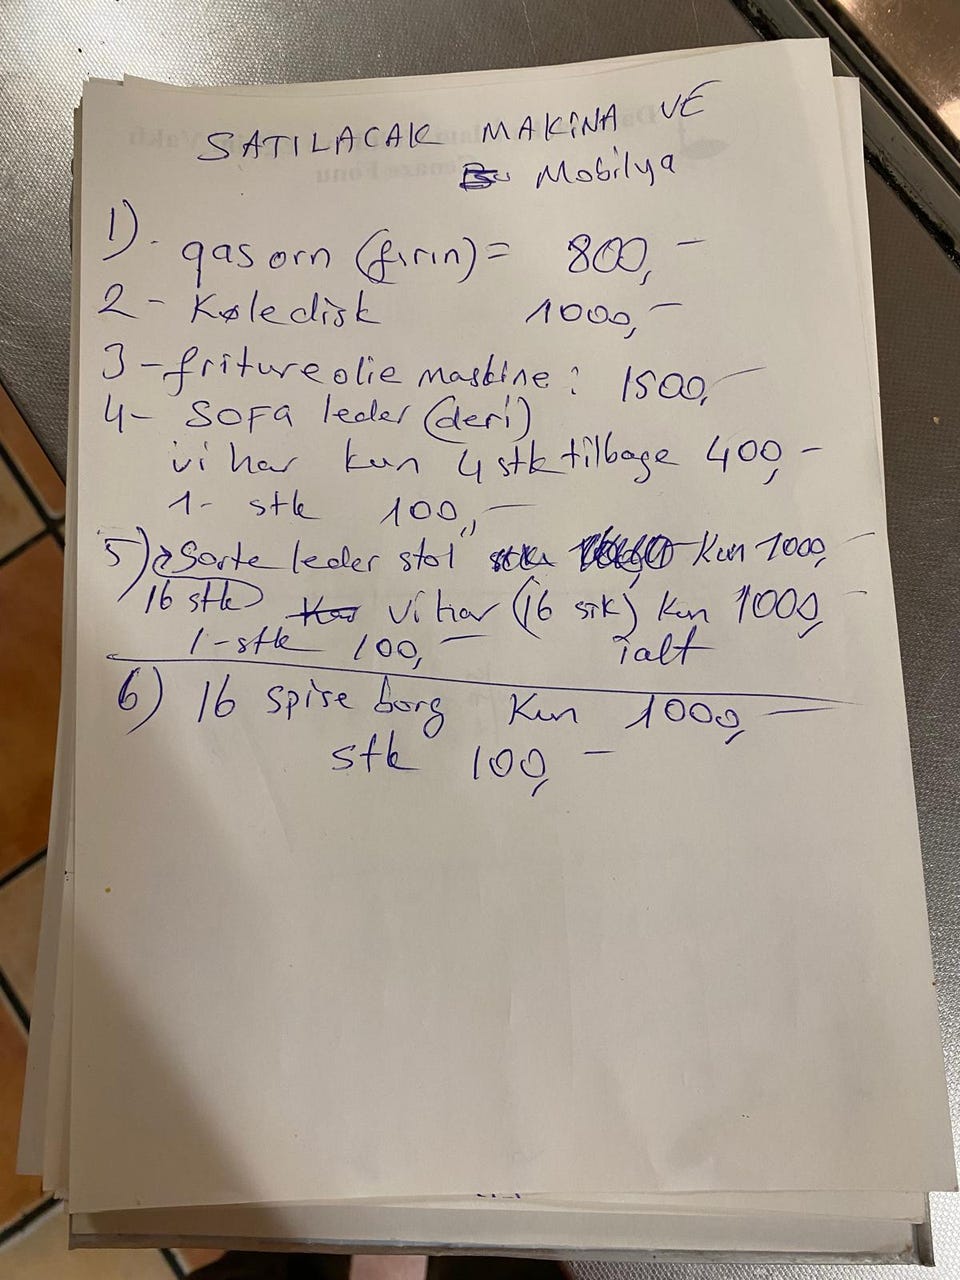 SATILACAK MAKİNA VE
Mobilya
1). gas orn (fırın) = 800,-
2 - Køledisk 1000,-
3 - fritureolie maskine : 1500,-
4 - SOFA leder (deri)
vi har kun 4 stk tilbage 400,-
1 - stk 100,-
5) Sorte leder stol Kun 1000,-
16 stk vi har (16 stk) kun 1000,-
1 - stk 100,- ialt
6) 16 spise borg Kun 1000,-
stk 100,-